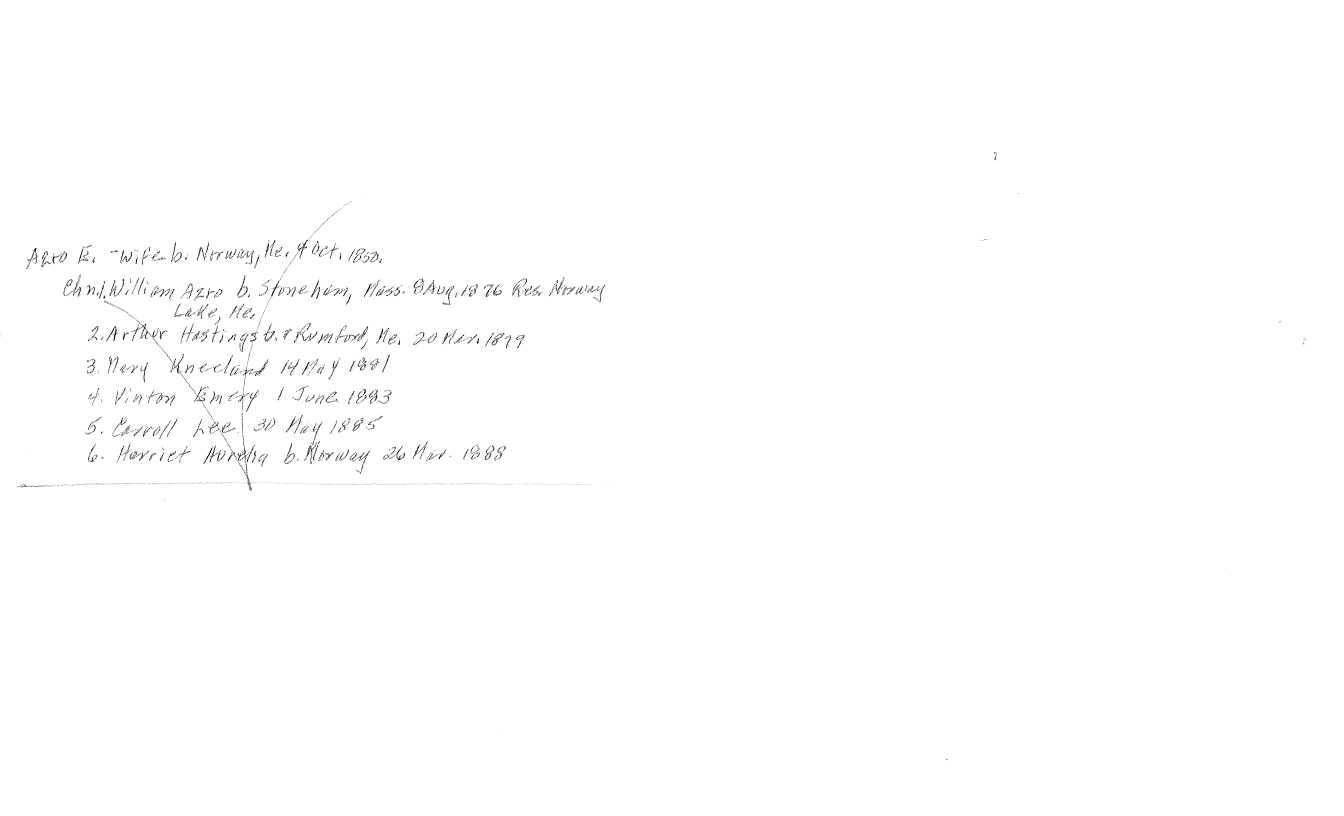 Azro E. - Wife b. Norway, Me. 4 Oct. 1850.
Chn. 1. William Azro b. Stoneham, Mass. 8 Aug. 1876 Res. Norway
Lake, Me.
2. Arthur Hastings b. Rumford, Me. 20 Mar. 1879
3. Mary Kneeland 14 May 1881
4. Vinton Emery 1 June 1883
5. Carroll Lee 30 May 1885
6. Harriet Aurelia b. Norway 26 Mar. 1888